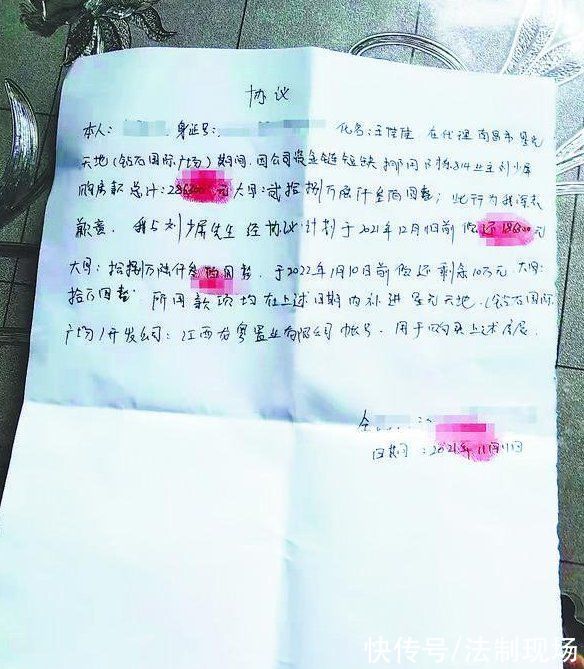 协议
本人: 身证号: 化名:王世佳 在代理南昌市星光
天地(钻石国际广场)期间,因公司资金链短缺挪用 业主刘少军
购房款总计:286300元大写:贰拾捌万陆仟叁佰圆整;此行为我深表
歉意。我与刘少军先生经协议计划于2021年12月10日前偿还186300元
大写:拾捌万陆仟叁佰圆整,于2022年1月10日前偿还剩余10万元 大写:
拾万圆整 所用款项均在上述日期内补进星光天地(钻石国际
广场)开发公司:江西 粤置业有限公司帐号。用于购买上述房屋。
日期:2021年11月11日
快传号/法制现场